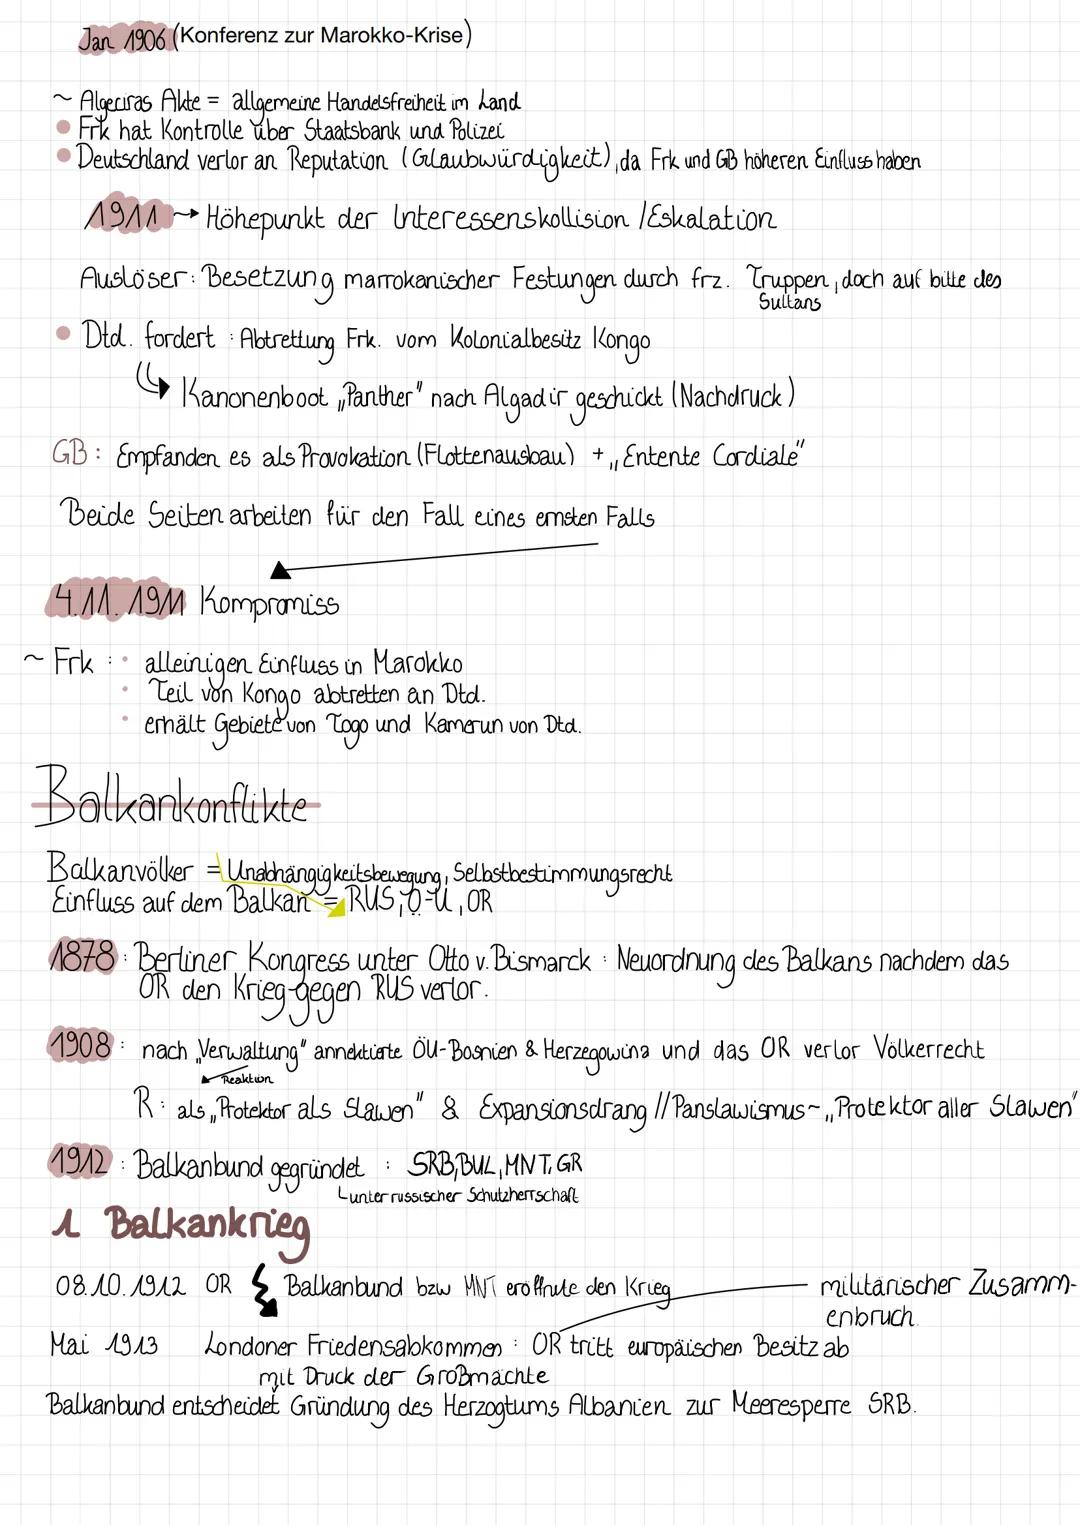 Jan 1906 (Konferenz zur Marokko-Krise)
~ Algeciras Akte = allgemeine Handelsfreiheit im Land
• Frk hat Kontrolle über Staatsbank und Polizei
• Deutschland verlor an Reputation (Glaubwürdigkeit), da Frk und GB höheren Einfluss haben
1911 → Höhepunkt der Interessenskollision / Eskalation
Auslöser: Besetzung marrokanischer Festungen durch frz. Truppen, doch auf bitte des
Sultans
• Dtd. fordert : Abtrettung Frk. vom Kolonialbesitz Kongo
↳ Kanonenboot „Panther" nach Algadir geschickt (Nachdruck)
GB: Empfanden es als Provokation (Flottenausbau) + „Entente Cordiale"
Beide Seiten arbeiten für den Fall eines ernsten Falls
4.11.1911 Kompromiss
~ Frk : • alleinigen Einfluss in Marokko
• Teil von Kongo abtretten an Dtd.
• erhält Gebiete von Togo und Kamerun von Dtd.
Balkankonflikte
Balkanvölker = Unabhängigkeitsbewegung, Selbstbestimmungsrecht
Einfluss auf dem Balkan = RUS, Ö-U, OR
1878 : Berliner Kongress unter Otto v. Bismarck : Neuordnung des Balkans nachdem das
OR den Krieg gegen RUS verlor.
1908 : nach „Verwaltung" annektierte ÖU-Bosnien & Herzegowina und das OR verlor Völkerrecht
Reaktion
R : als „Protektor als Slawen" & Expansionsdrang // Panslawismus ~ „Protektor aller Slawen"
1912 : Balkanbund gegründet : SRB, BUL, MNT, GR
└ unter russischer Schutzherrschaft
1 Balkankrieg
08.10.1912 OR Balkanbund bzw MNT eröffnete den Krieg militärischer Zusamm-
enbruch.
Mai 1913 Londoner Friedensabkommen : OR tritt europäischen Besitz ab
mit Druck der Großmächte
Balkanbund entscheidet Gründung des Herzogtums Albanien zur Meeresperre SRB.